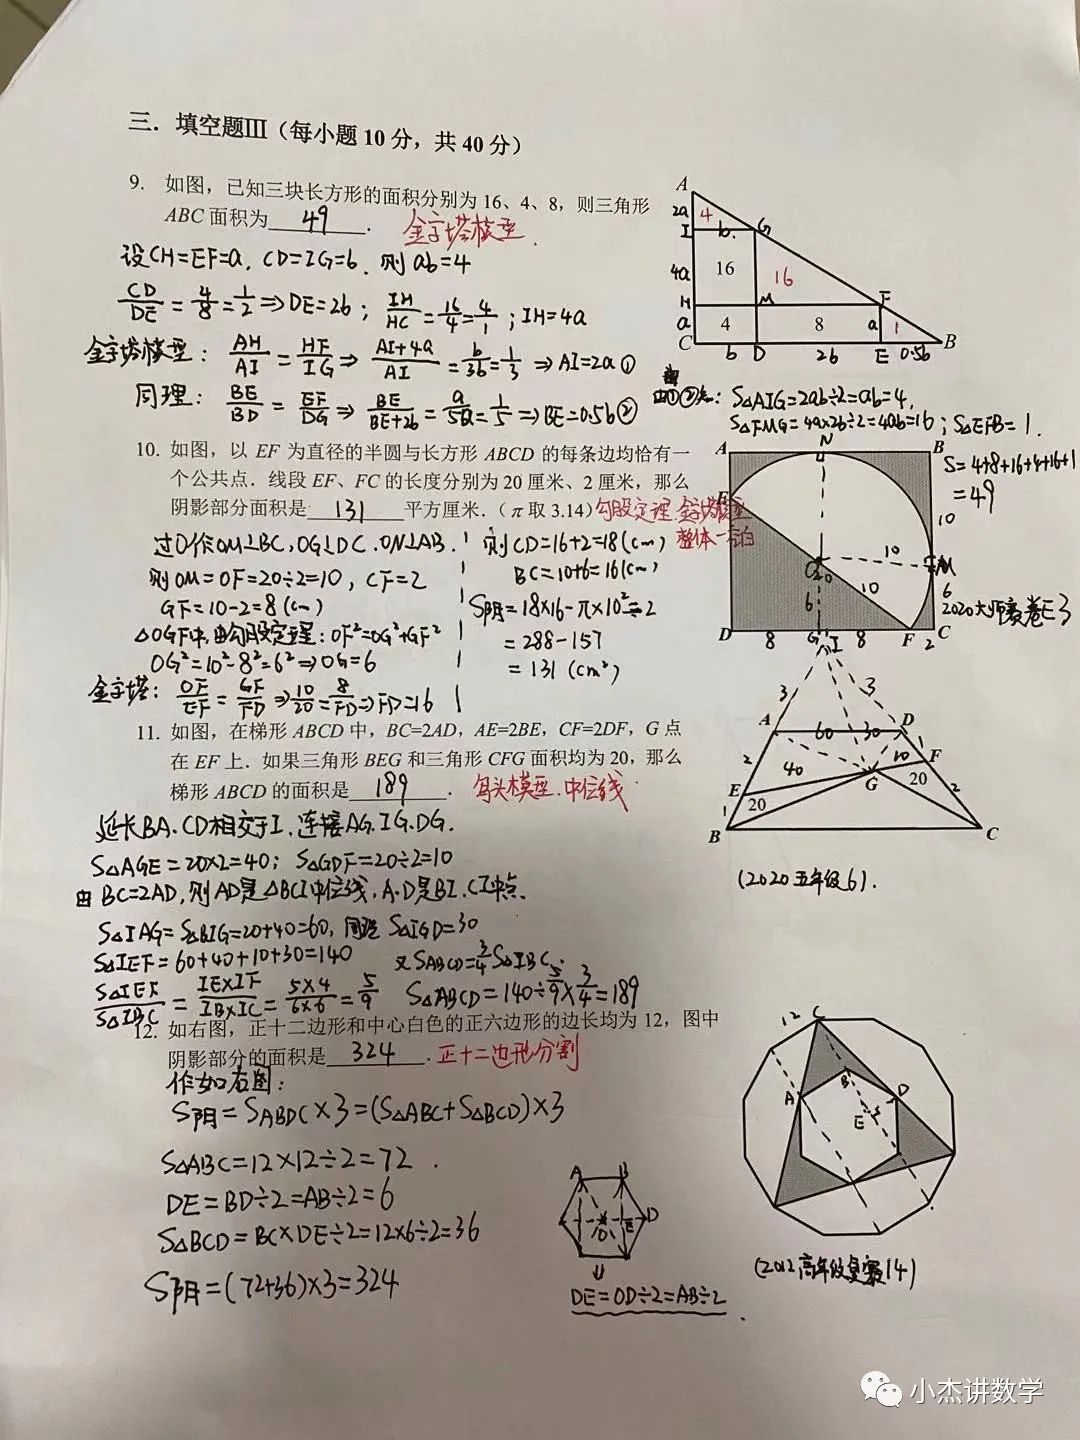 三．填空题Ⅲ（每小题10分，共40分）
9. 如图，已知三块长方形的面积分别为16、4、8，则三角形
ABC面积为 49 . 金字塔模型.
设CH=EF=a, CD=IG=b, 则ab=4
CD/DE=4/8=1/2⇒DE=2b; IH/HC=16/4=4/1; IH=4a
金字塔模型: AH/AI=HF/IG⇒AI+4a/AI=b/3b=1/3⇒AI=2a①
同理: BE/BD=EF/DG⇒BE/BE+2b=a/5a=1/5⇒BE=0.5b②
A
2a
4
I
b
G
4a
16
16
H
M
F
a
4
8
a
1
C
b
D
2b
E
0.5b
B
由①②知: S△AIG=2ab÷2=ab=4,
S△FMG=4a×2b÷2=4ab=16; S△EFB=1.
S=4+8+16+4+16+1
=49
10. 如图，以EF为直径的半圆与长方形ABCD的每条边均恰有一
个公共点．线段EF、FC的长度分别为20厘米、2厘米，那么
阴影部分面积是 131 平方厘米．（π取3.14）勾股定理.金字塔模型
整体-空白
过O作OM⊥BC,OG⊥DC.ON⊥AB.
则OM=OF=20÷2=10, CF=2
GF=10-2=8(cm)
△OGF中,由勾股定理:OF²=OG²+GF²
OG²=10²-8²=6²⇒OG=6
金字塔: OF/EF=GF/FD⇒10/20=8/FD⇒FD=16
则CD=16+2=18(cm)
BC=10+6=16(cm)
S阴=18×16-π×10²÷2
=288-157
=131(cm²)
A
N
B
E
10
O
10
M
6
10
6
D
8
G
8
F
2
C
11. 如图，在梯形ABCD中，BC=2AD，AE=2BE，CF=2DF，G点
在EF上．如果三角形BEG和三角形CFG面积均为20，那么
梯形ABCD的面积是 189 . 鸟头模型.中位线
延长BA.CD相交于I,连接AG.IG.DG.
S△AGE=20×2=40; S△GDF=20÷2=10
由BC=2AD,则AD是△BCI中位线,A.D是BI.CI中点.
S△IAG=S△BIG=20+40=60,同理S△IGD=30
S△IEF=60+40+10+30=140 又SABCD=3/4S△IBC.
S△IEF/S△IBC=IE×IF/IB×IC=5×4/6×6=5/9 SABCD=140÷5/9×3/4=189
I
3
3
A
60
30
D
2
40
10
F
E
20
G
20
2
1
B
C
(2020五年级6).
12. 如右图，正十二边形和中心白色的正六边形的边长均为12，图中
阴影部分的面积是 324 . 正十二边形分割
作如右图:
S阴=SABDC×3=(S△ABC+S△BCD)×3
S△ABC=12×12÷2=72.
DE=BD÷2=AB÷2=6
S△BCD=BC×DE÷2=12×6÷2=36
S阴=(72+36)×3=324
A
B
O
E
D
DE=OD÷2=AB÷2.
12
C
B
A
D
E
小杰讲数学